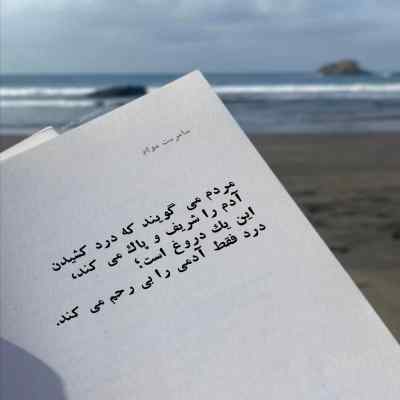 سامرست موام
مردم می گویند که درد کشیدن
آدم را شریف و پاك می کند،
این یك دروغ است؛
درد فقط آدمی را بی رحم می کند.